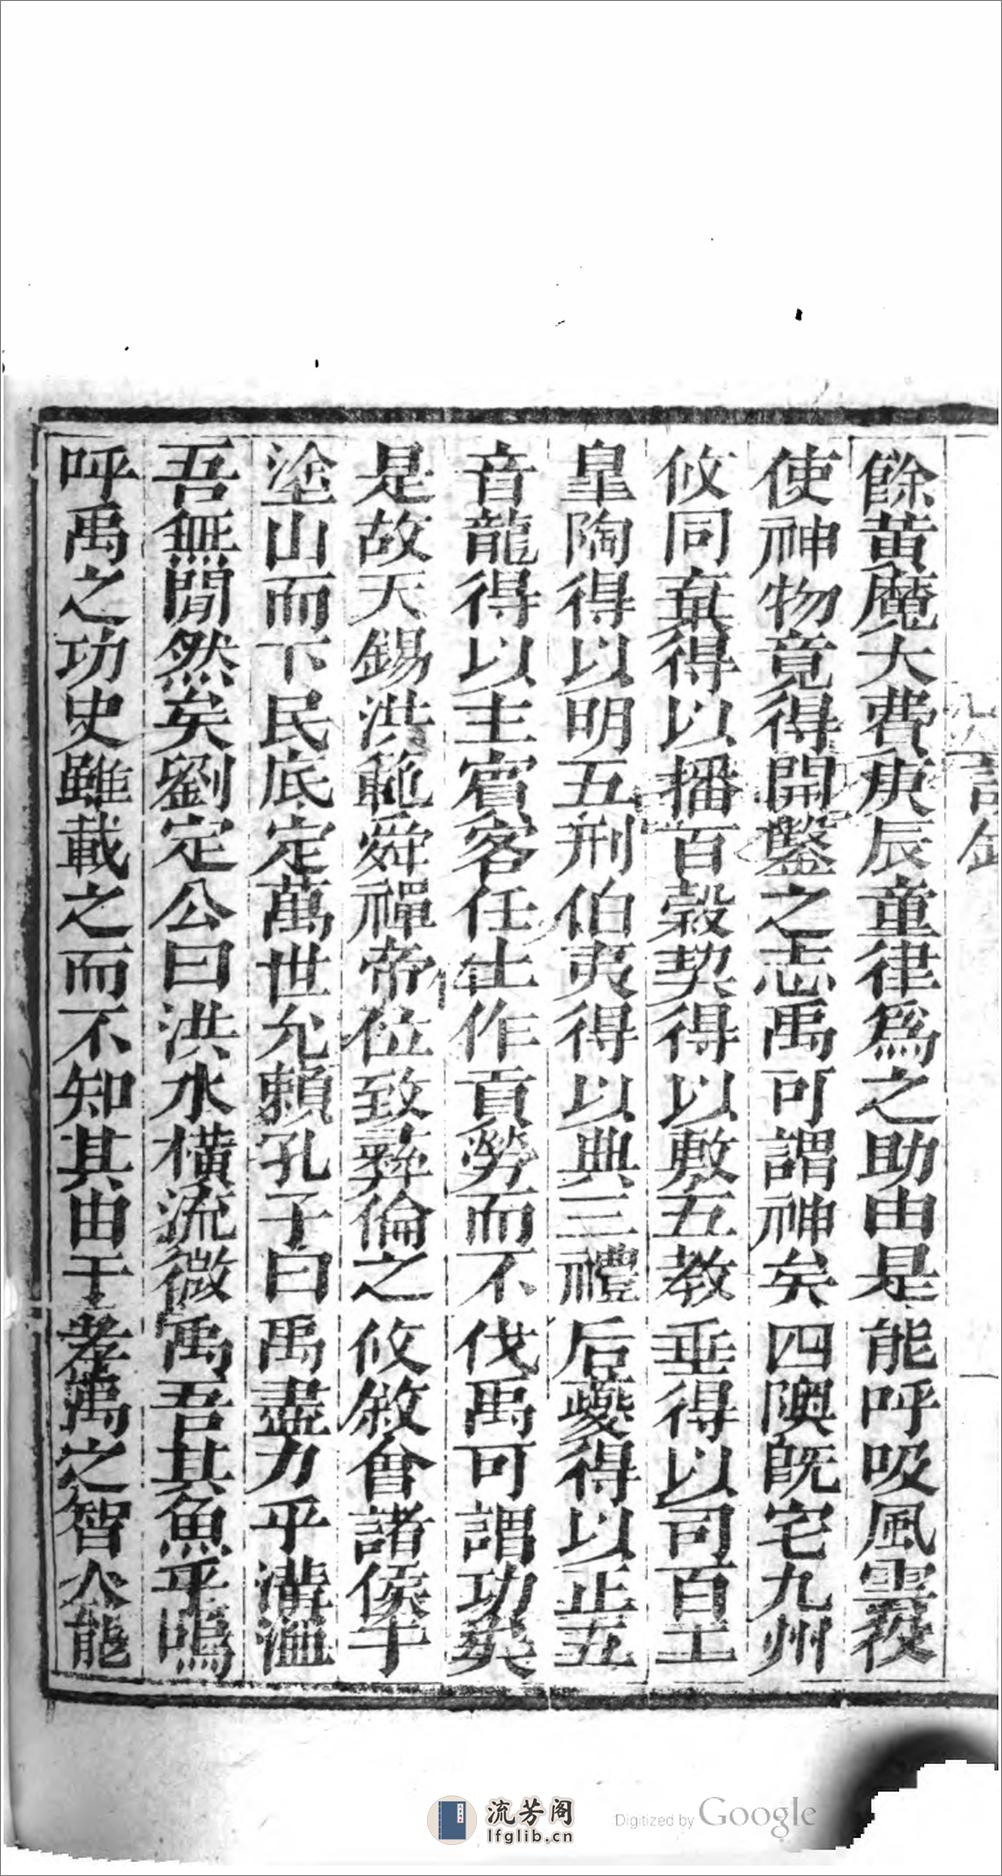 餘黄魔大費庚辰童律爲之助由是能呼吸風雲役
使神物竟得開鑿之志禹可謂神矣四隩旣宅九州
攸同棄得以播百榖契得以敷五教垂得以司百工
皐陶得以明五刑伯夷得以典三禮后夔得以正五
音龍得以主賔客任土作貢勞而不伐禹可謂功矣
是故天錫洪範舜禪帝位致彝倫之攸敘會諸侯于
塗山而下民底定萬世允賴孔子曰禹盡力乎溝洫
吾無閒然矣劉定公曰洪水横流微禹吾其魚乎嗚
呼禹之功史雖載之而不知其由于孝禹之智人能
流芳阁
lfglib.cn
Digitized by Google